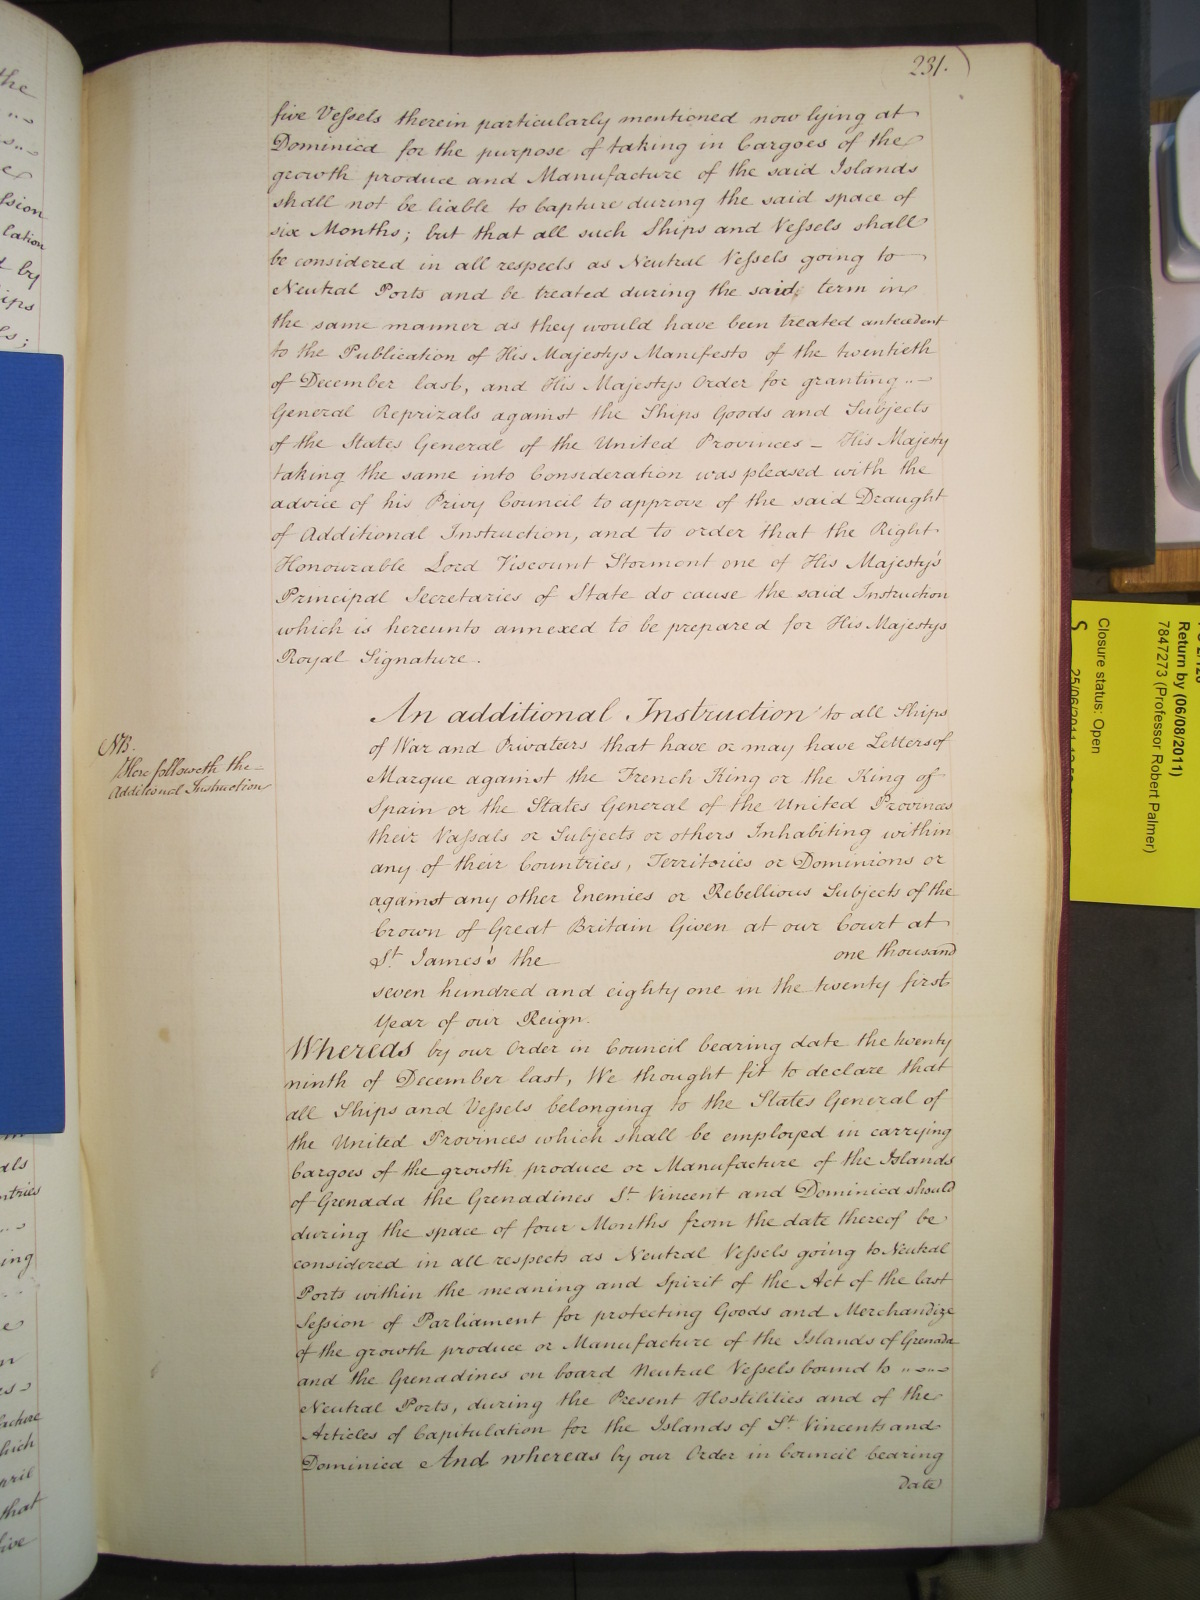 231.
five Vessels therein particularly mentioned now lying at
Dominica for the purpose of taking in Cargoes of the
growth produce and Manufacture of the said Islands
shall not be liable to Capture during the said space of
six Months; but that all such Ships and Vessels shall
be considered in all respects as Neutral Vessels going to
Neutral Ports and be treated during the said term in
the same manner as they would have been treated antecedent
to the Publication of His Majestys Manifesto of the twentieth
of December last, and His Majestys Order for granting
General Reprizals against the Ships Goods and Subjects
of the States General of the United Provinces – His Majesty
taking the same into Consideration was pleased with the
advice of his Privy Council to approve of the said Draught
of Additional Instruction, and to order that the Right
Honourable Lord Viscount Stormont one of His Majesty's
Principal Secretaries of State do cause the said Instruction
which is hereunto annexed to be prepared for His Majestys
Royal Signature.
NB.
Here followeth the
Additional Instruction
An additional Instruction to all Ships
of War and Privateers that have or may have Letters of
Marque against the French King or the King of
Spain or the States General of the United Provinces
their Vassals or Subjects or others Inhabiting within
any of their Countries, Territories or Dominions or
against any other Enemies or Rebellious Subjects of the
Crown of Great Britain Given at our Court at
St. James's the one thousand
seven hundred and eighty one in the twenty first
Year of our Reign.
Whereas by our Order in Council bearing date the twenty
ninth of December last, We thought fit to declare that
all Ships and Vessels belonging to the States General of
the United Provinces which shall be employed in carrying
Cargoes of the growth produce or Manufacture of the Islands
of Grenada the Grenadines St. Vincent and Dominica should
during the space of four Months from the date thereof be
considered in all respects as Neutral Vessels going to Neutral
Ports within the meaning and Spirit of the Act of the last
Session of Parliament for protecting Goods and Merchandize
of the growth produce or Manufacture of the Islands of Grenada
and the Grenadines on board Neutral Vessels bound to
Neutral Ports, during the Present Hostilities and of the
Articles of Capitulation for the Islands of St. Vincents and
Dominica And whereas by our Order in Council bearing
Date
Return by (06/08/2011)
7847273 (Professor Robert Palmer)
Closure status: Open